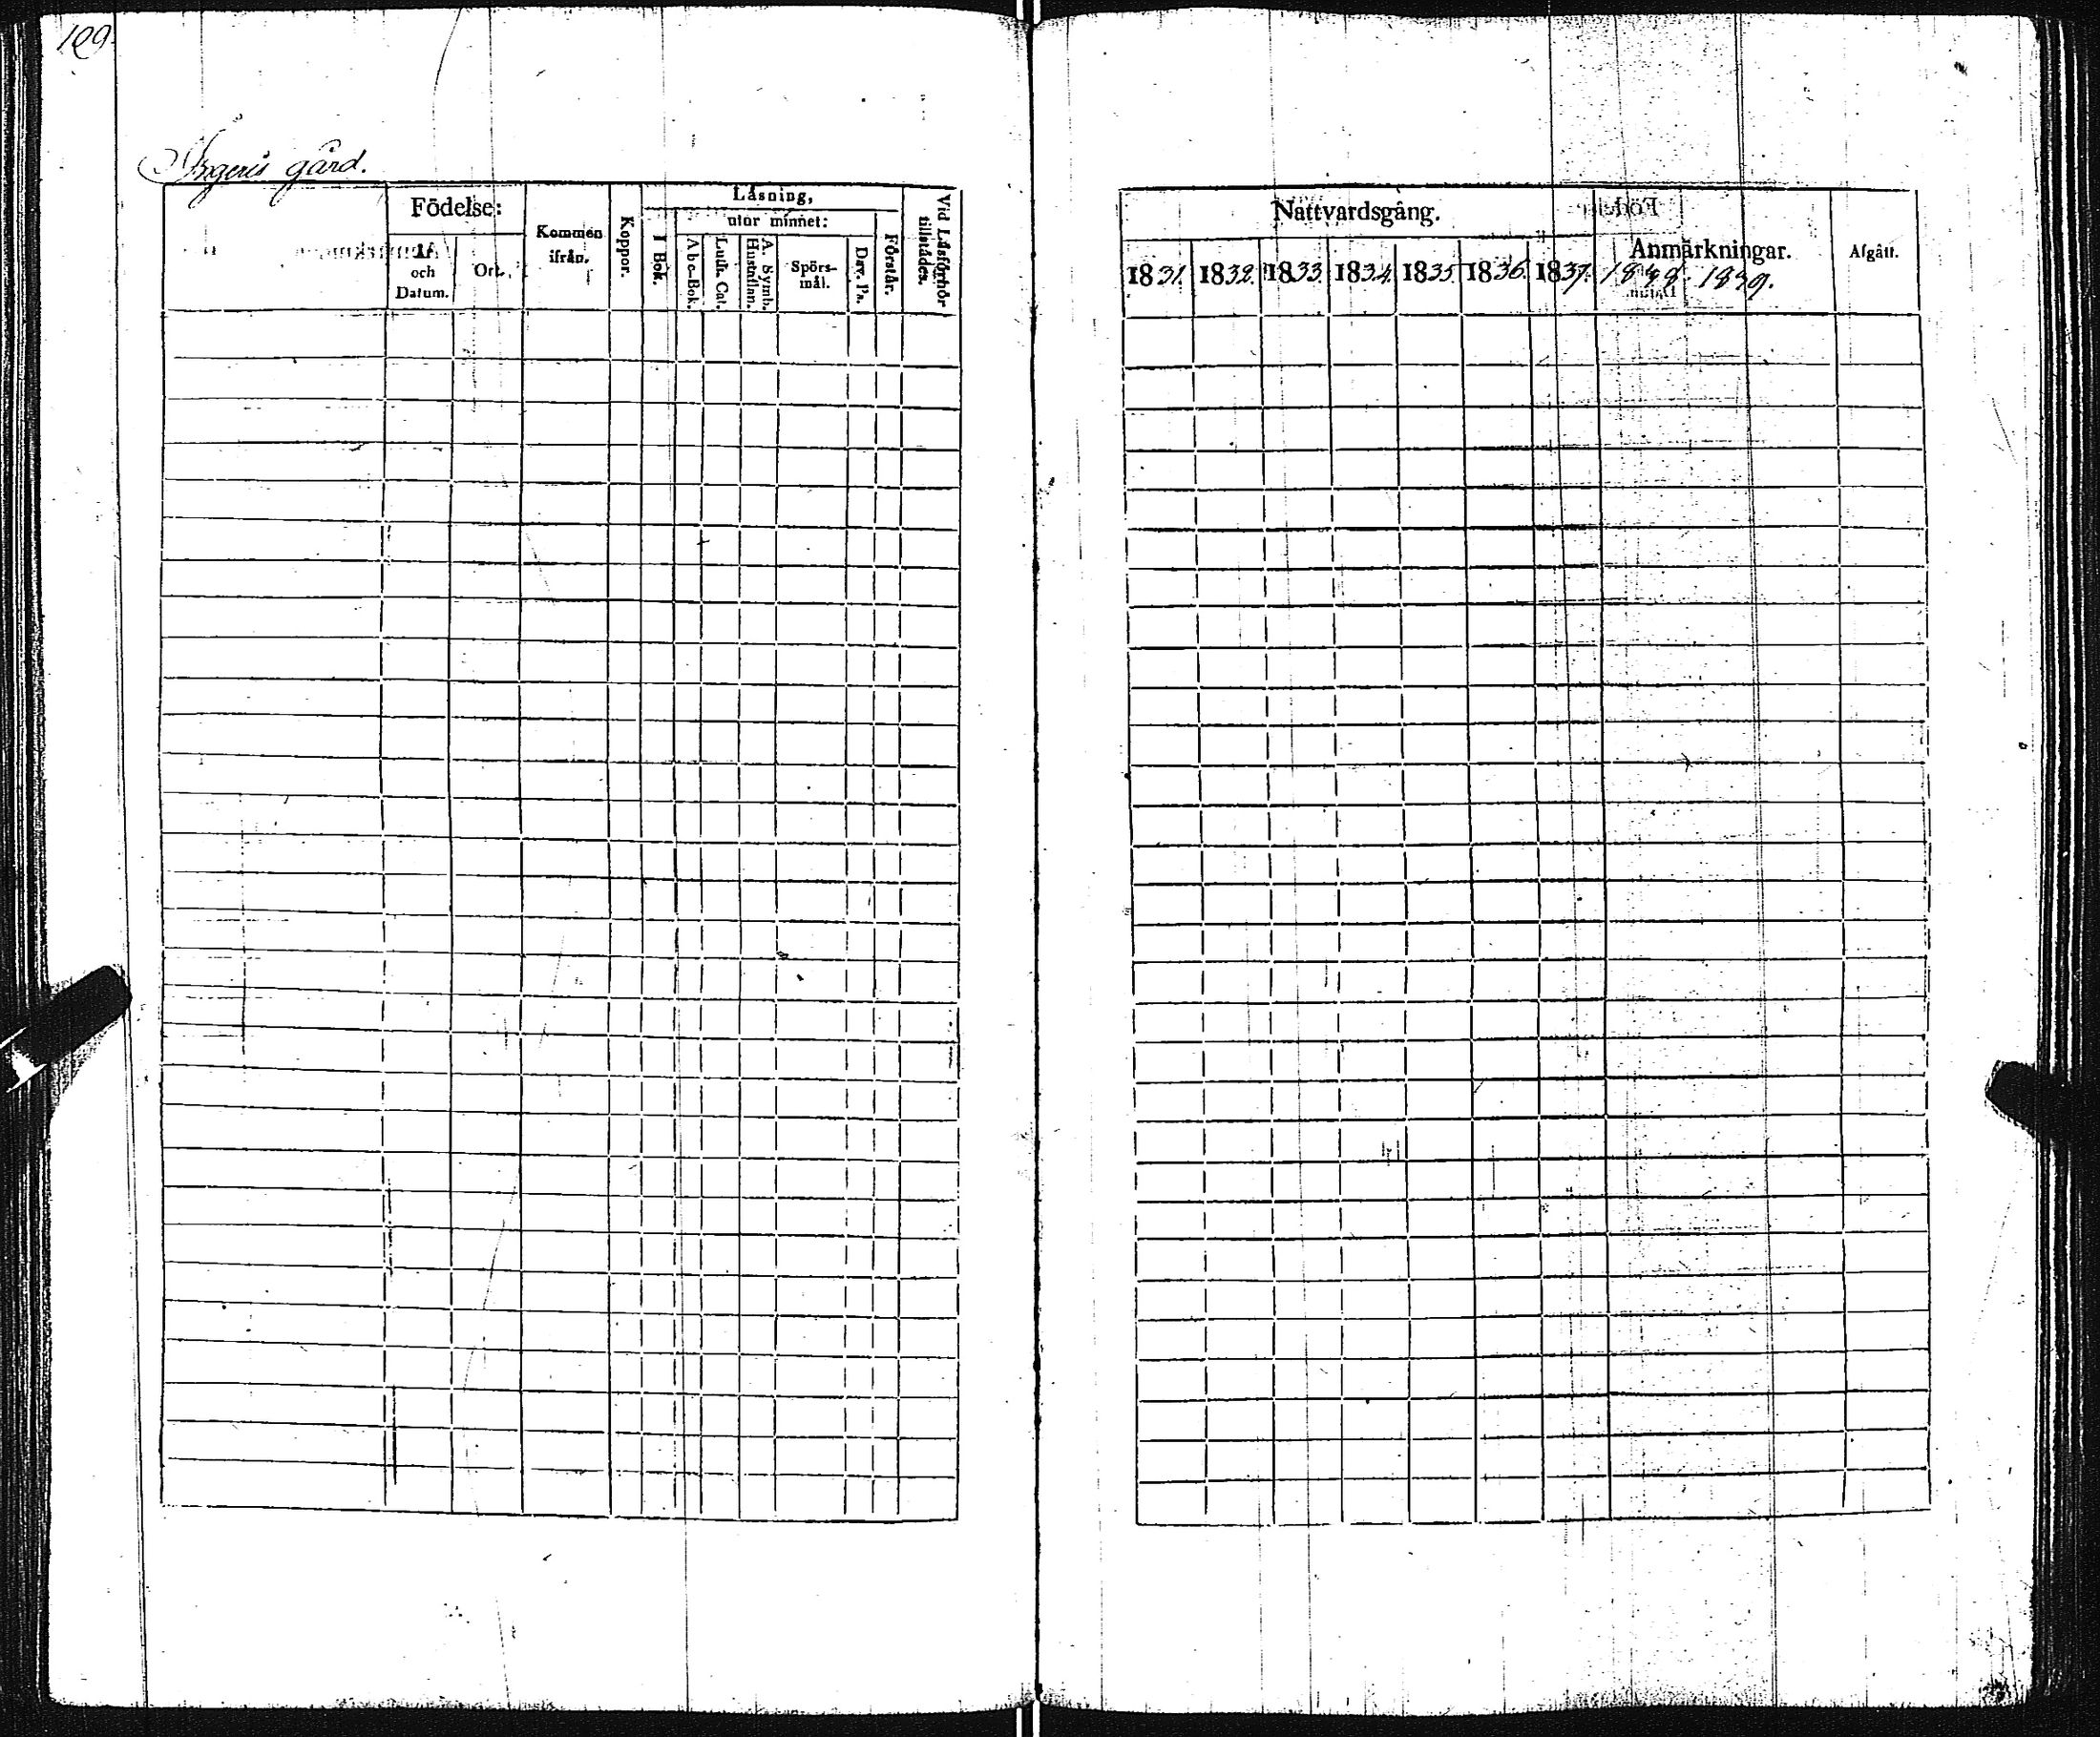 109.
gård.
Födelse:
År
och
Datum.
Ort.
Kommen
ifrån.
Koppor.
Läsning,
I Bok.
utur minnet:
Abc-Bok.
Luth. Cat.
A. Symb.
Hustaflan.
Spörs-
mål.
Dav. Ps.
Förstår.
Vid Läsförhör
tillstädes.
Nattvardsgång.
1831. 1832. 1833. 1834. 1835 1836. 1837. 1838. 1839.
Anmärkningar.
Afgått.